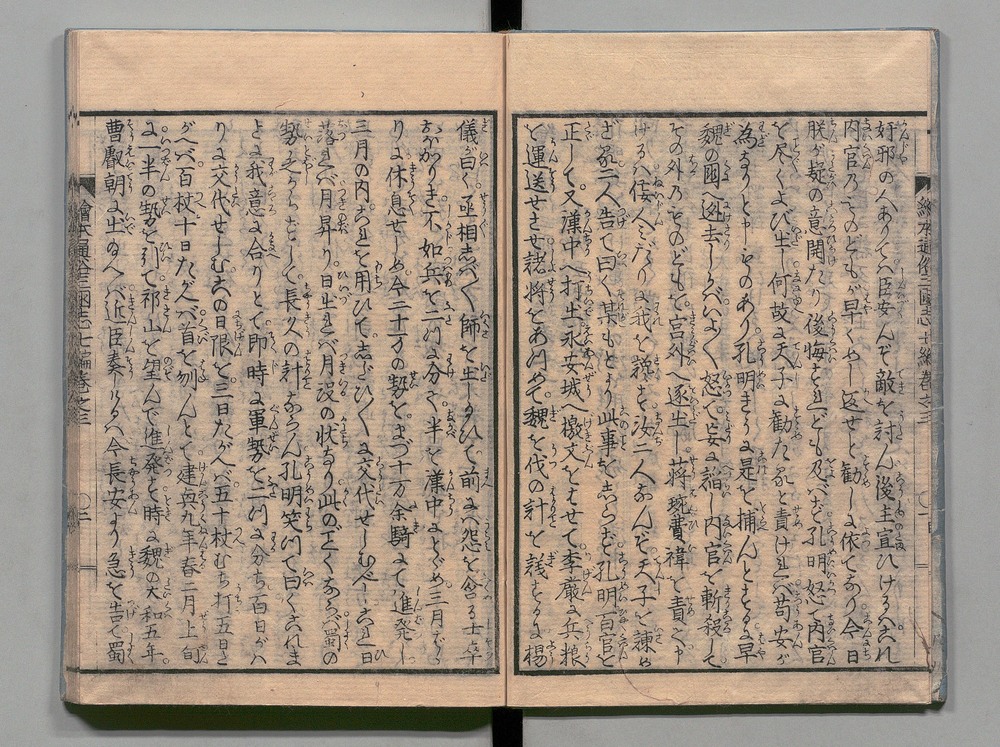 奸邪の人ありてハ臣安んぞ敵を討ん後主宣ひけるハ是れ
内官のものどもが早くめし返せと勧しに依てあり今日
朕が疑の意開たり後悔すれども及バず孔明怒て内官
を尽くよび出し何故に天子に勧たるぞと責けれバ苟安が
為なりと申ものあり孔明急に是を捕んとするに早
魏の国へ逃去しかバいよいよ怒て妄に謡し内官を斬殺して
その外のものどもを宮外へ逐出し蒋琬費禕を責て申
けるハ佞人みだりに我を謗るを汝二人なんぞ天子を諫め
ざる二人告て曰く某もとより此事をしらずと孔明百官を
正して又漢中へ打出永安城へ檄文をはせて李厳に兵粮
を運送せさせ諸将をあつめて魏を伐の計を議するに楊
儀曰く丞相しバしバ師を出し玉ひて前にハ怨を含る士卒
おおかりき不如兵を二つに分て半を漢中にとどめ三月をかぎ
りに休息せしめ今二十万の勢をまづ十万余騎にて進発し
三月の内これを用ひてしりぞひて交代せしむべしこれ日
落れバ月昇り日出れバ月没の状なり此のごとくなるバ蜀の
勢乏からずして長久の計ならん孔明笑つて曰くこれま
とに我意に合りとて即時に軍勢を二つに分ち百日がハ
りに交代せしむ其の日限を三日たがへバ五十杖むち打五日た
がへバ百杖十日たがへバ首を刎んとて建興九年春二月上旬
に一半の勢を引て祁山を望んで進発す時に魏の大和五年
曹叡朝に出玉へバ近臣奏しけるハ今長安より急を告て蜀
繪本通俗三國志七編巻之三